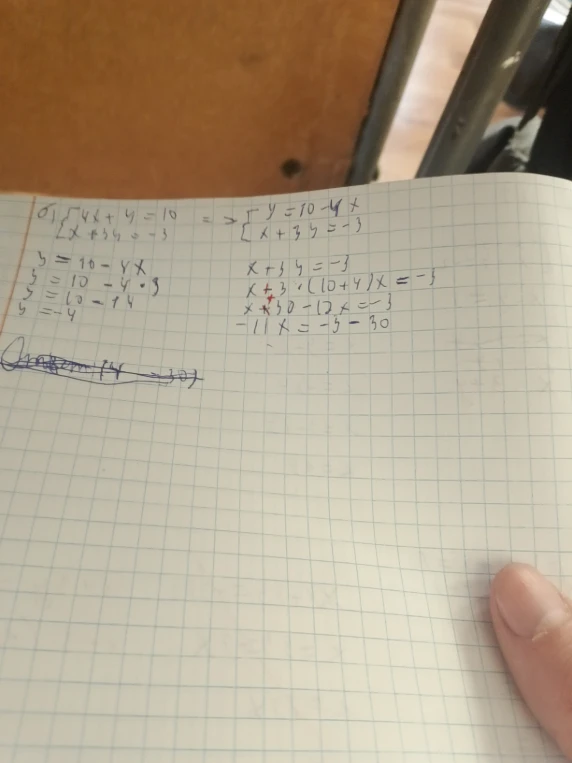 б) { 4x + y = 10 => { y = 10 - 4x
{ x + 3y = -3 { x + 3y = -3
y = 10 - 4x
y = 10 - 4 · 3
y = 10 - 14
y = -4
x + 3y = -3
x + 3 · (10 + 4)x = -3
x + 30 - 12x = -3
-11x = -3 - 30